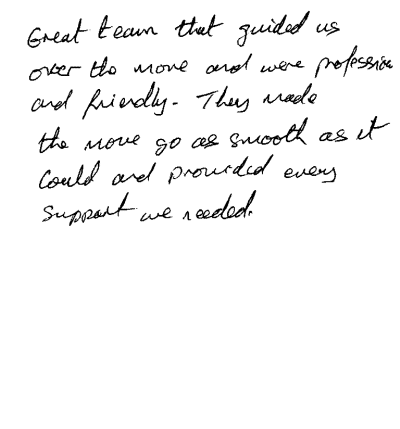 Great team that guided us
over the move and were profession
and friendly. They made
the move go as smooth as it
could and provided every
support we needed.